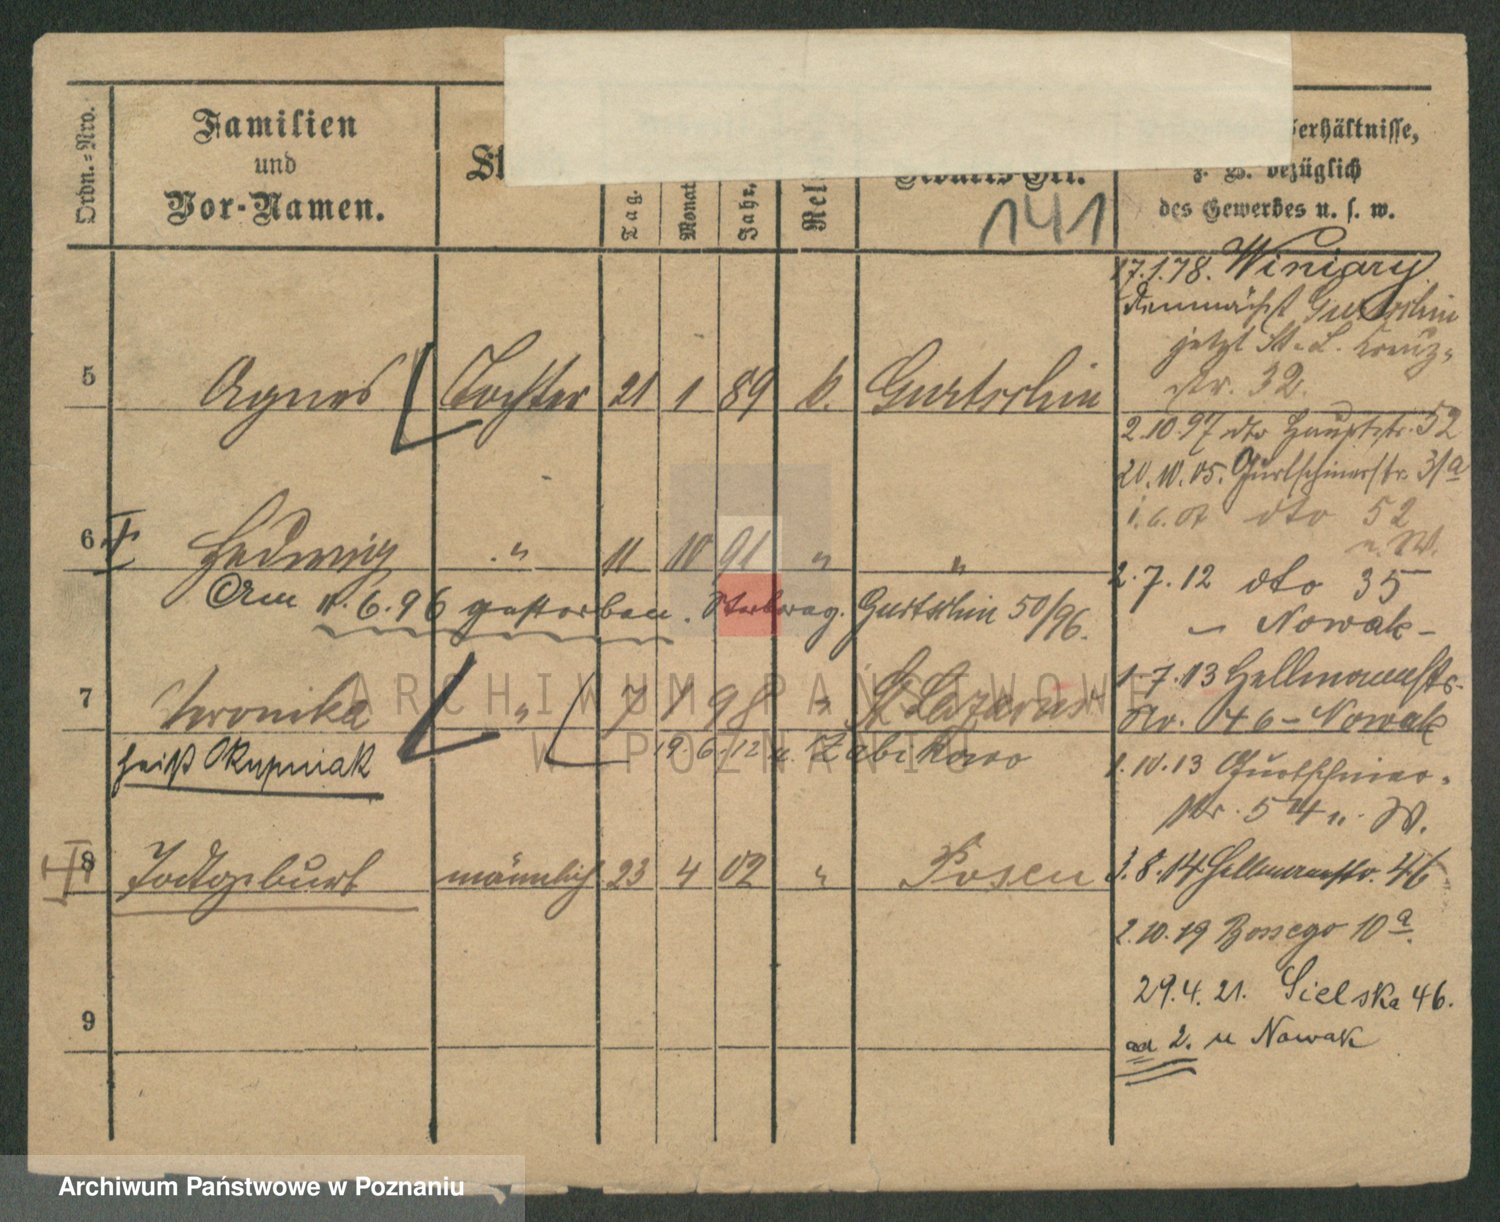 Ordn.-Nro.
Familien
und
Vor-Namen.
St
Tag.
Monat
Jahr.
Rel
Geburts-Ort.
141
Verhältnisse,
z. B. bezüglich
des Gewerbes u. s. w.
17.1.78. Winiary
demnächst Gurtschin
jetzt St. L. Kreuz-
str. 32.
5 Agnes Tochter 21 1 89 k. Gurtschin
2.10.97 dto Hauptstr. 52
20.10.05. Gurtschinerstr. 31a
1.6.07 dto 52
u. W.
6 Hedwig " 11 10 91 " "
Am 11.6.96 gestorben. Gurtschin 50/96.
2.7.12 dto 35
Nowak
7 Veronika " 7 1 98 " St Lazarus
heißt Skupniak
19.6.12 u. Zabikowo
1.7.13 Hellmannstr.
Nr. 46 - Nowak
1.10.13 Gurtschiner-
str. 54 u. W.
8 Todtgeburt männlich 23 4 02 " Posen
3.8.14 Hellmannstr. 46
2.10.19 Bossego 10a.
29.4.21. Sielska 46.
ad 2. u Nowak
9
ARCHIWUM PAŃSTWOWE
W POZNANIU
Archiwum Państwowe w Poznaniu